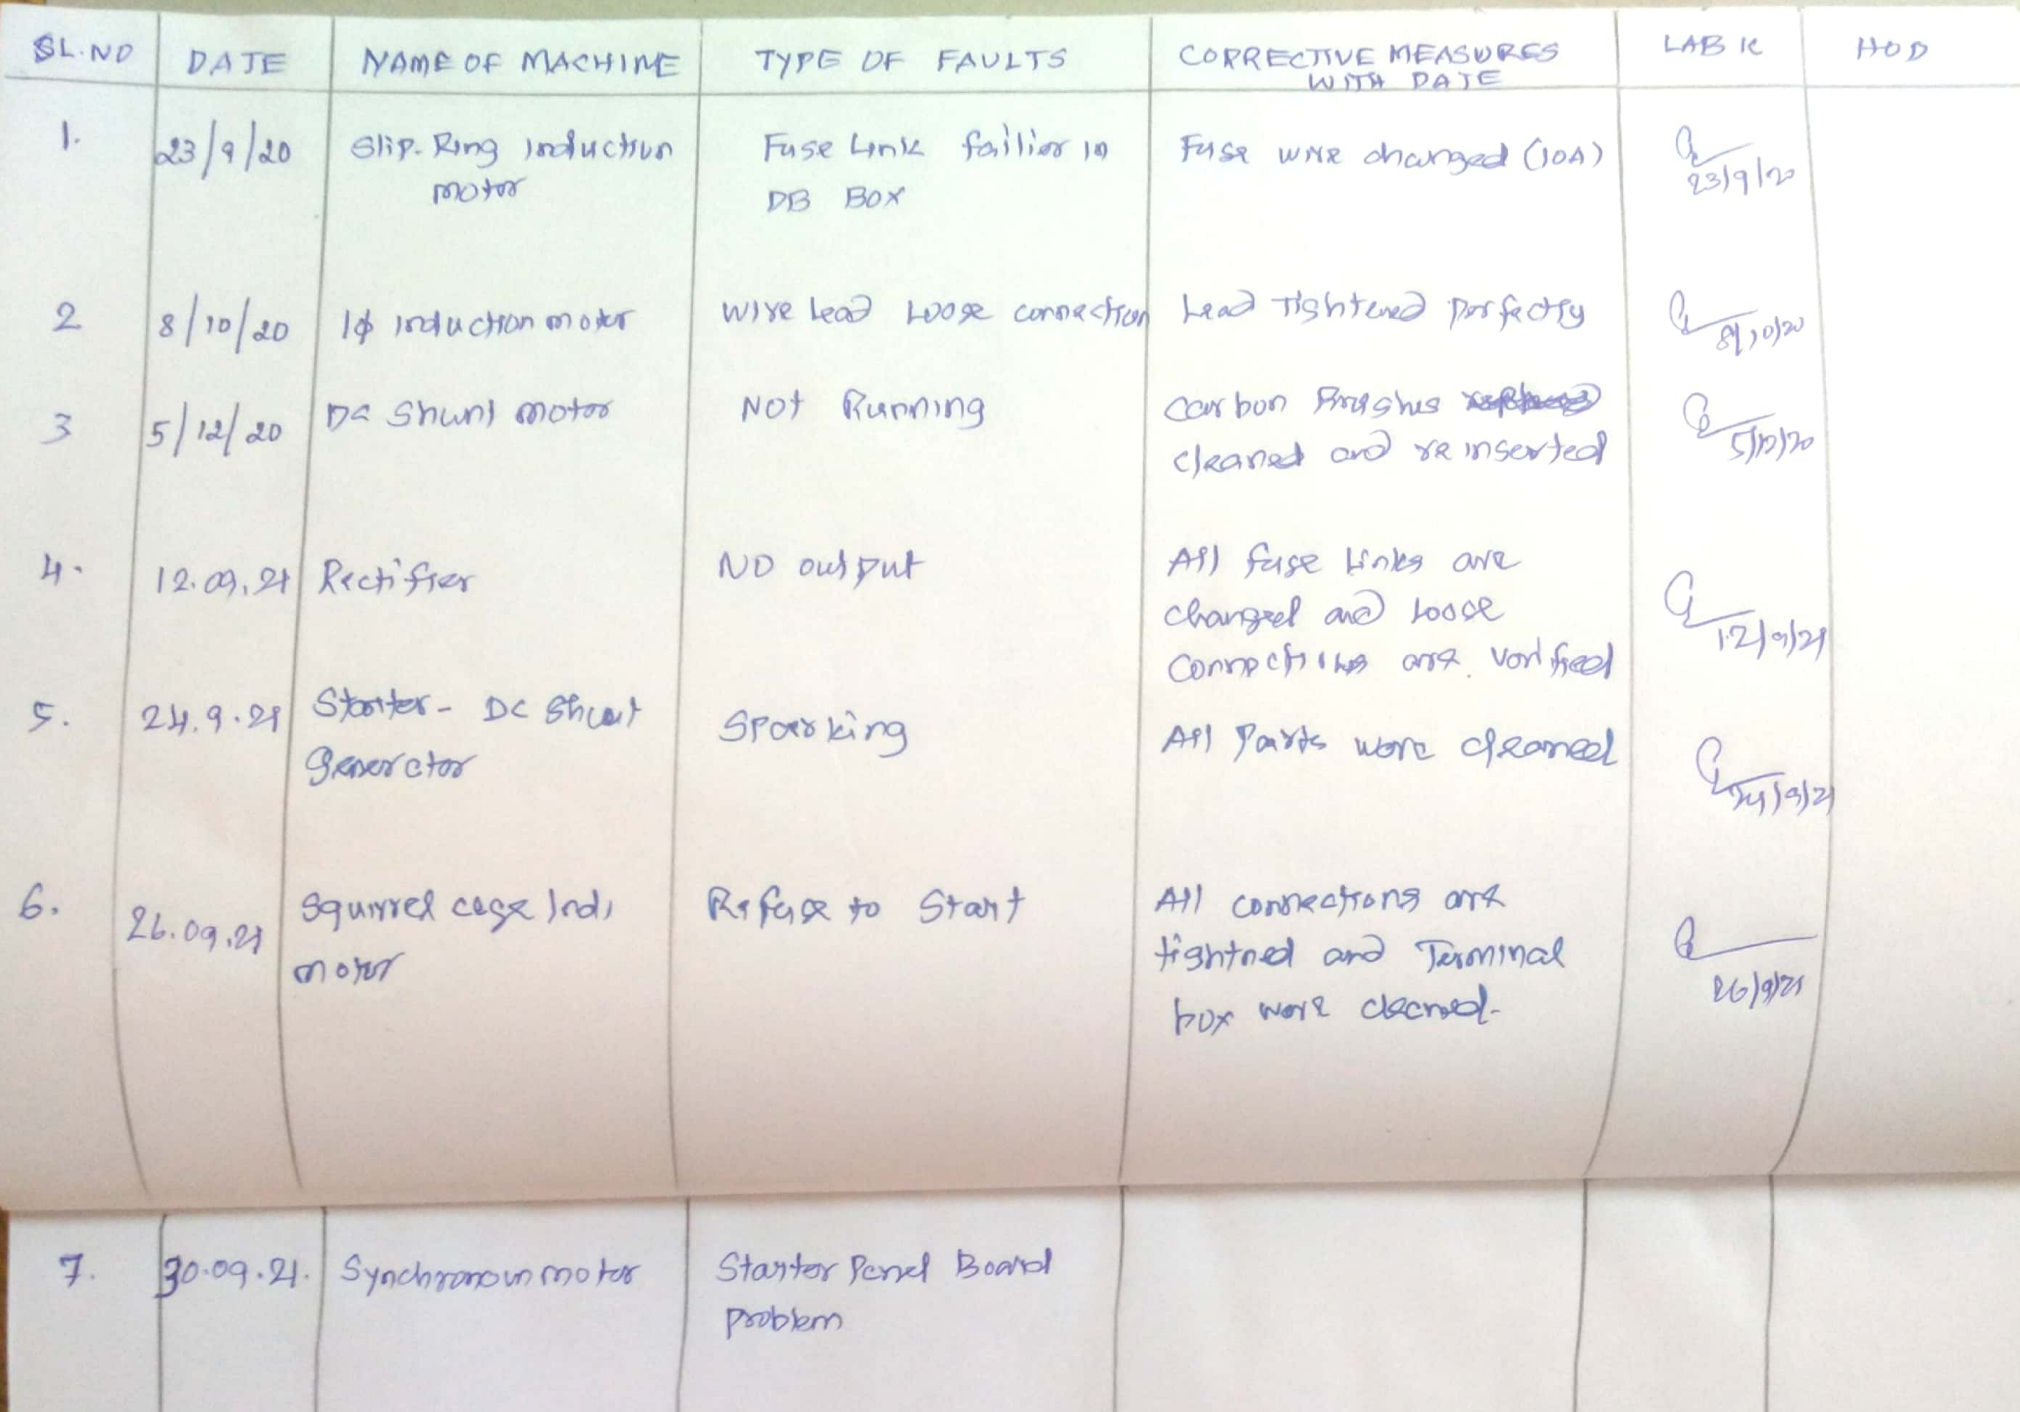 SL.NO DATE NAME OF MACHINE TYPE OF FAULTS CORRECTIVE MEASURES WITH DATE LAB IC HOD
1. 23/9/20 Slip-Ring induction Fuse Link failier in Fuse wire changed (10A)
motor DB BOX 23/9/20
2 8/10/20 1ϕ induction motor Wire lead loose connection Lead Tightened perfectly
8/10/20
3 5/12/20 DC Shunt motor Not Running Carbon Brushes
cleaned and reinserted 5/12/20
4. 12.09.21 Rectifier NO output All fuse links are
changed and loose
connections are verified 12/9/21
5. 24.9.21 Starter - DC Shunt Sparking All Parts were cleaned
generator 24/9/21
6. 26.09.21 Squirrel cage Ind. Refuse to Start All connections are
motor tightned and Terminal
box were cleaned. 26/9/21
7. 30.09.21. Synchronoun motor Starter Panel Board
problem